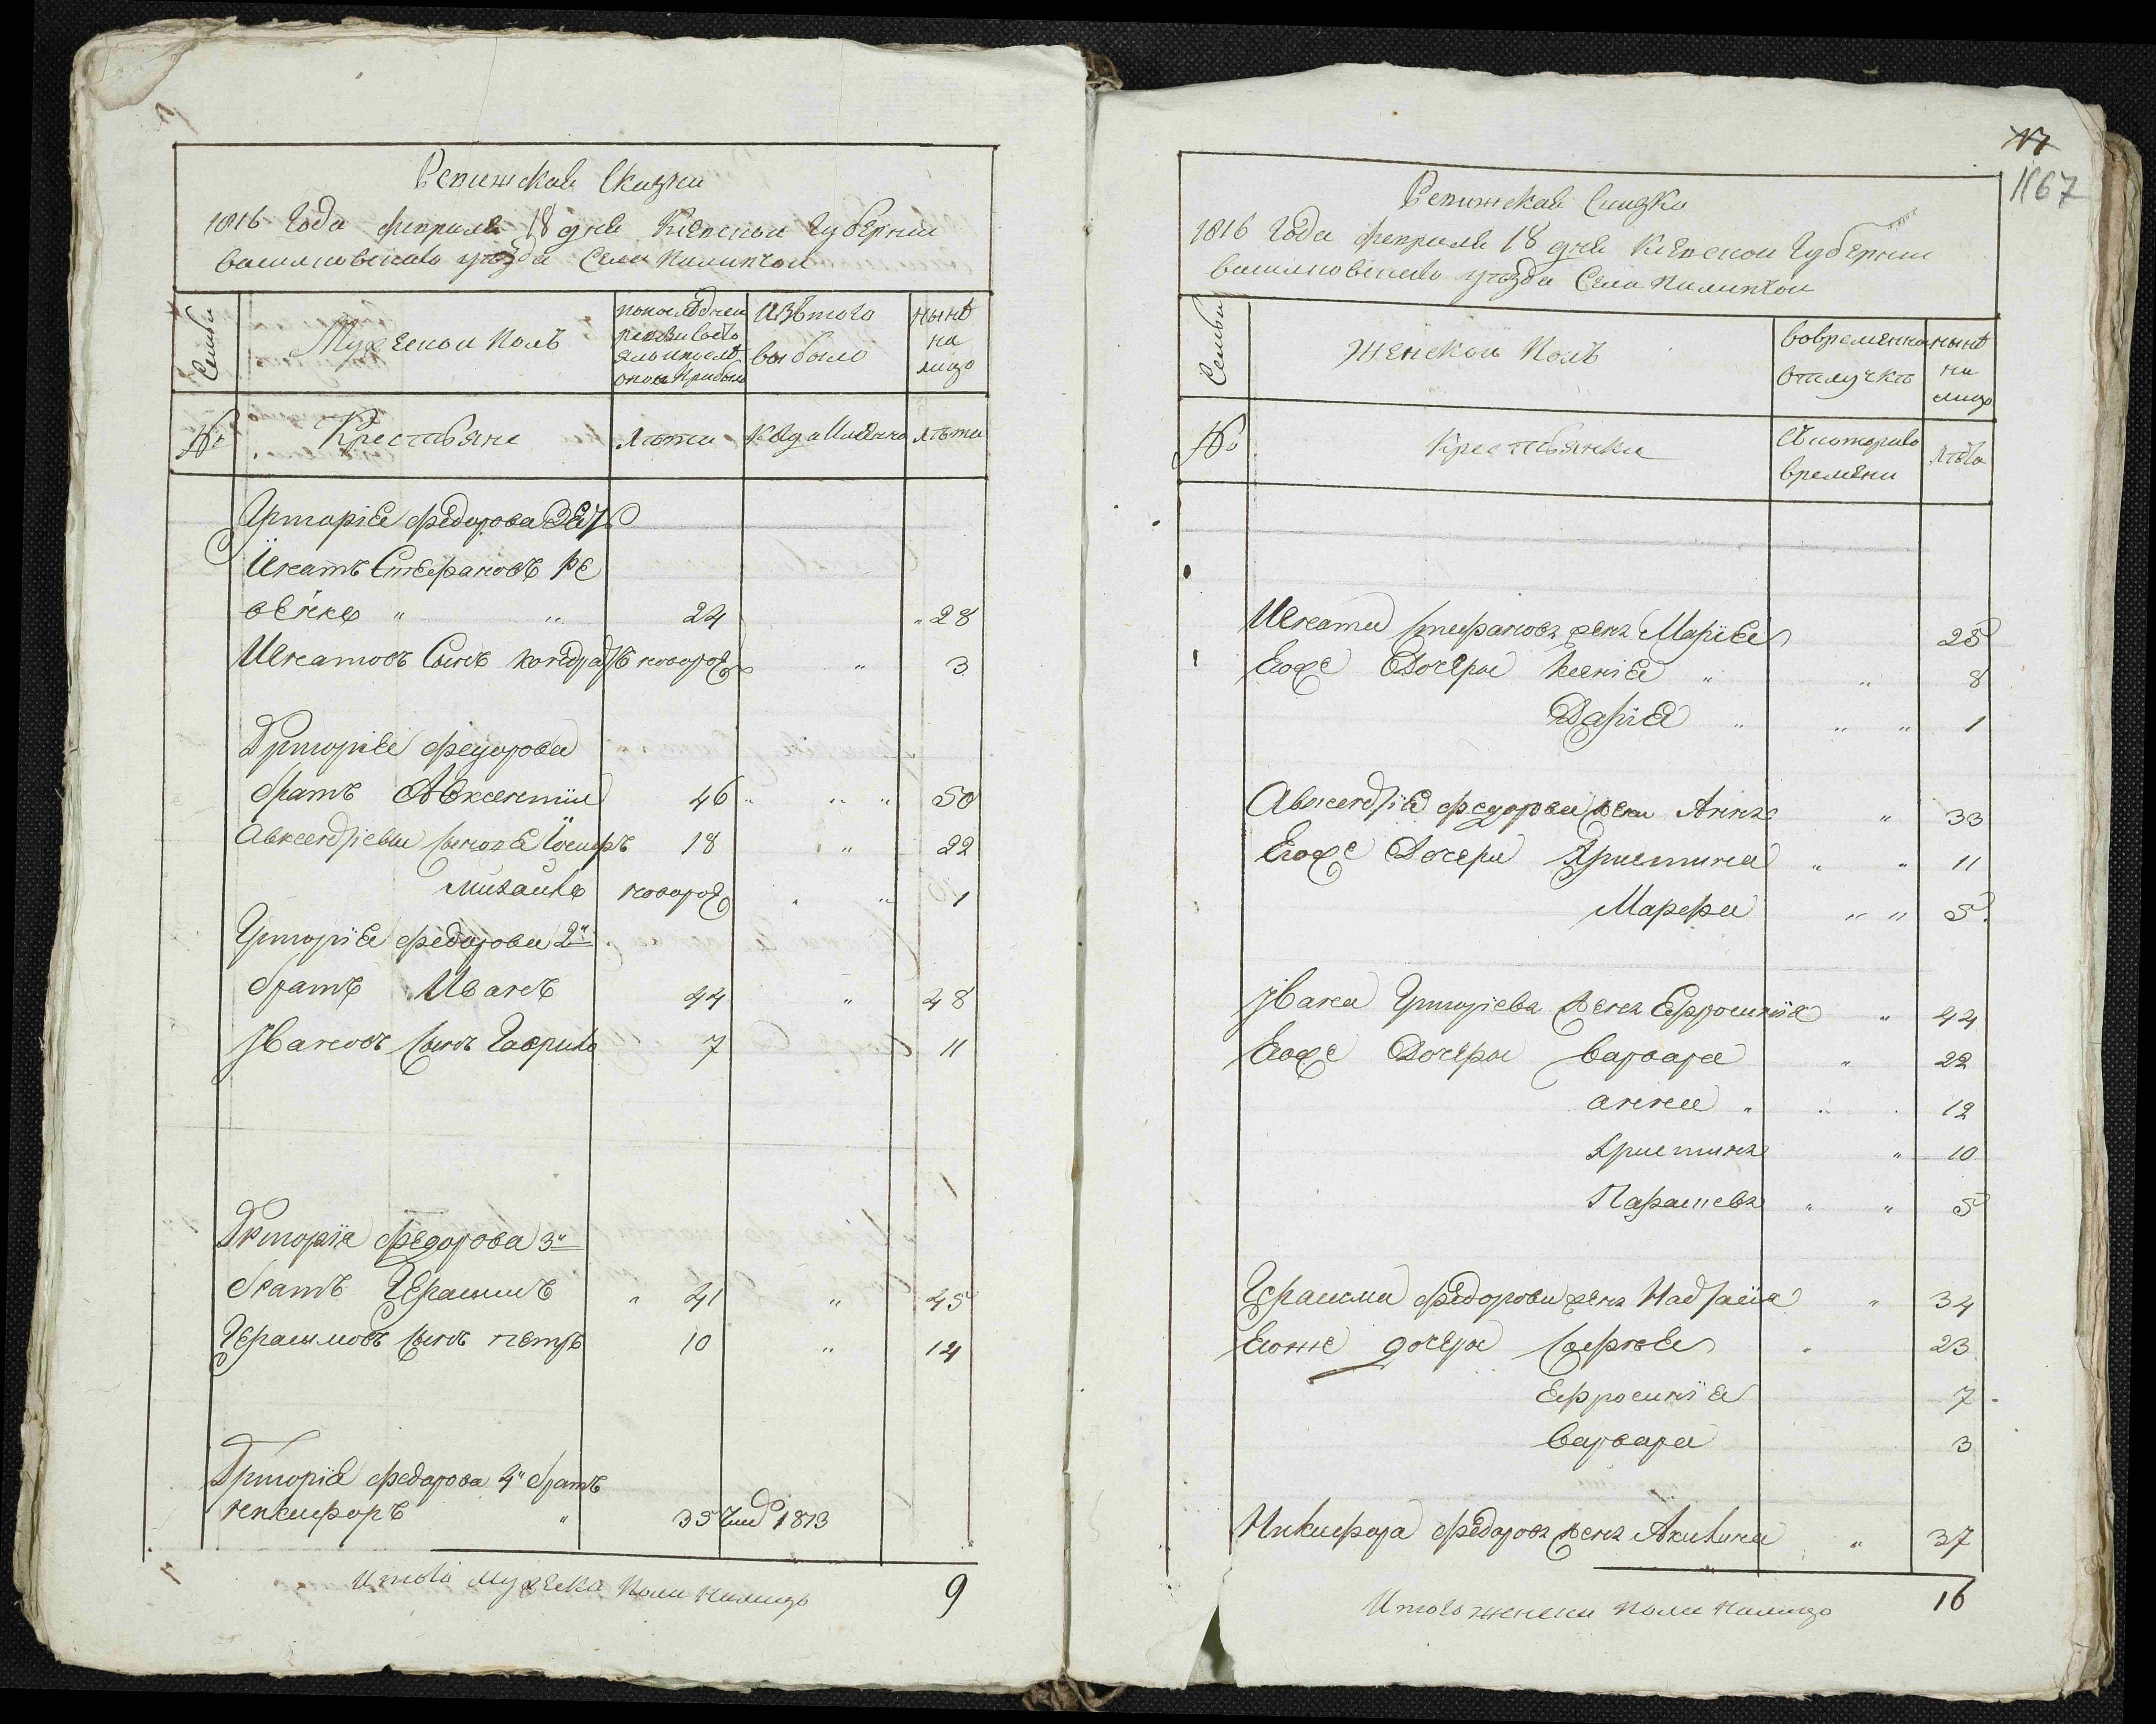 Ревижская Сказка
1816 Года февраля 18 дня Киевской Губернии
василковскаго уезда Села Пилипчои
Семьи
Мужескои Полъ
по последней ревизии состояло и после оной прибыло
Изъ того выбыло
ныне на лицо
№
Крестьяне
Лета
Когда Именно
лета
Григорiя федорова зять
Игнатъ Стефановъ Ре
венко " " 24 " 28
Игнатовъ Сынъ кондратъ новорож " 3
Григорiя федорова
братъ Авксентии 46 " " " 50
Авксентiевы сыновя Iосифъ 18 " 22
михайло новорож " " 1
Григорiя федорова 2й
братъ Иванъ 44 " 48
Ивановъ сынъ Гаврило 7 11
Григорiя федорова 3й
братъ Герасимъ " 41 " 45
Герасимовъ сынъ петръ 10 " 14
Григорiя федорова 4й братъ
никифоръ " 35 1813
Итого мужеска пола налицо 9
117
1167
Ревижская Сказка
1816 Года февраля 18 дня Киевской Губернии
василковскаго уезда Села Пилипчои
Семьи
Женской Полъ
вовременной отлучке
ныне на лицо
№
Крестьянки
Съ котораго времени
лета
Игната стефанова жена Марiя 28
Егоже Дочеры ксенiя " " 8
Дарiя " " " 1
Авксентiя федорова жена Анна " 33
Егоже Дочери Христина " " 11
Марфа " " 5
Ивана Григорiева жена Ефросинiя " 44
Егоже Дочеры варвара " 22
анна " " 12
христина " 10
Параскева " " 5
Герасима федорова жена Надзаiя " 34
Егоже дочеры софiя " 23
Ефросинiя 7
варвара 3
Никифора федорова жена Акилина " 37
Итого женска пола налицо 16